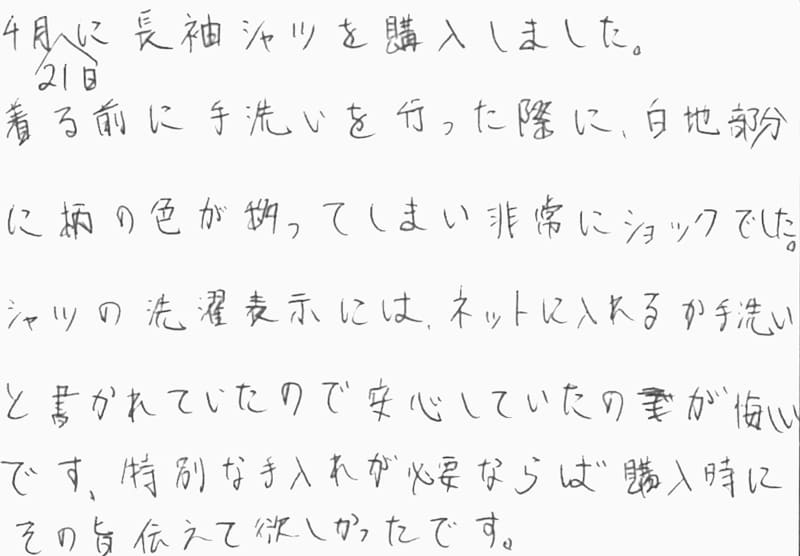 4月21日に長袖シャツを購入しました。
着る前に手洗いを行った際に、白地部分
に柄の色が移ってしまい非常にショックでした。
シャツの洗濯表示には、ネットに入れるか手洗い
と書かれていたので安心していたのが悔しい
です、特別な手入れが必要ならば購入時に
その旨伝えて欲しかったです。